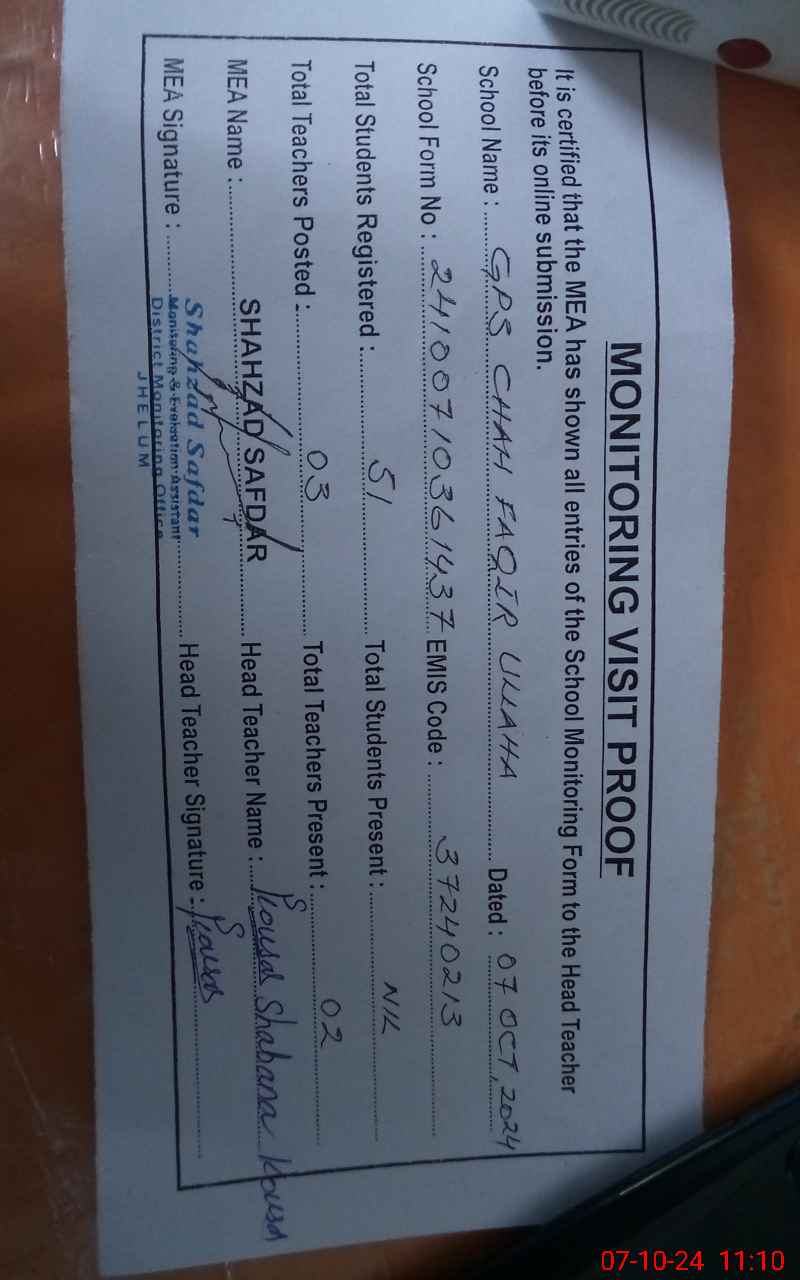 MONITORING VISIT PROOF
It is certified that the MEA has shown all entries of the School Monitoring Form to the Head Teacher
before its online submission.
School Name : GPS CHAH FAQIR ULLAHA Dated : 07 OCT, 2024
School Form No : 24100710361437 EMIS Code : 37240213
Total Students Registered : 51 Total Students Present : NIL
Total Teachers Posted : 03 Total Teachers Present : 02
MEA Name : SHAHZAD SAFDAR Head Teacher Name : Shabana Kousar
MEA Signature : Head Teacher Signature : Kousar
Shahzad Safdar
Monitoring & Evaluation Assistant
District Monitoring Office
JHELUM
07-10-24 11:10